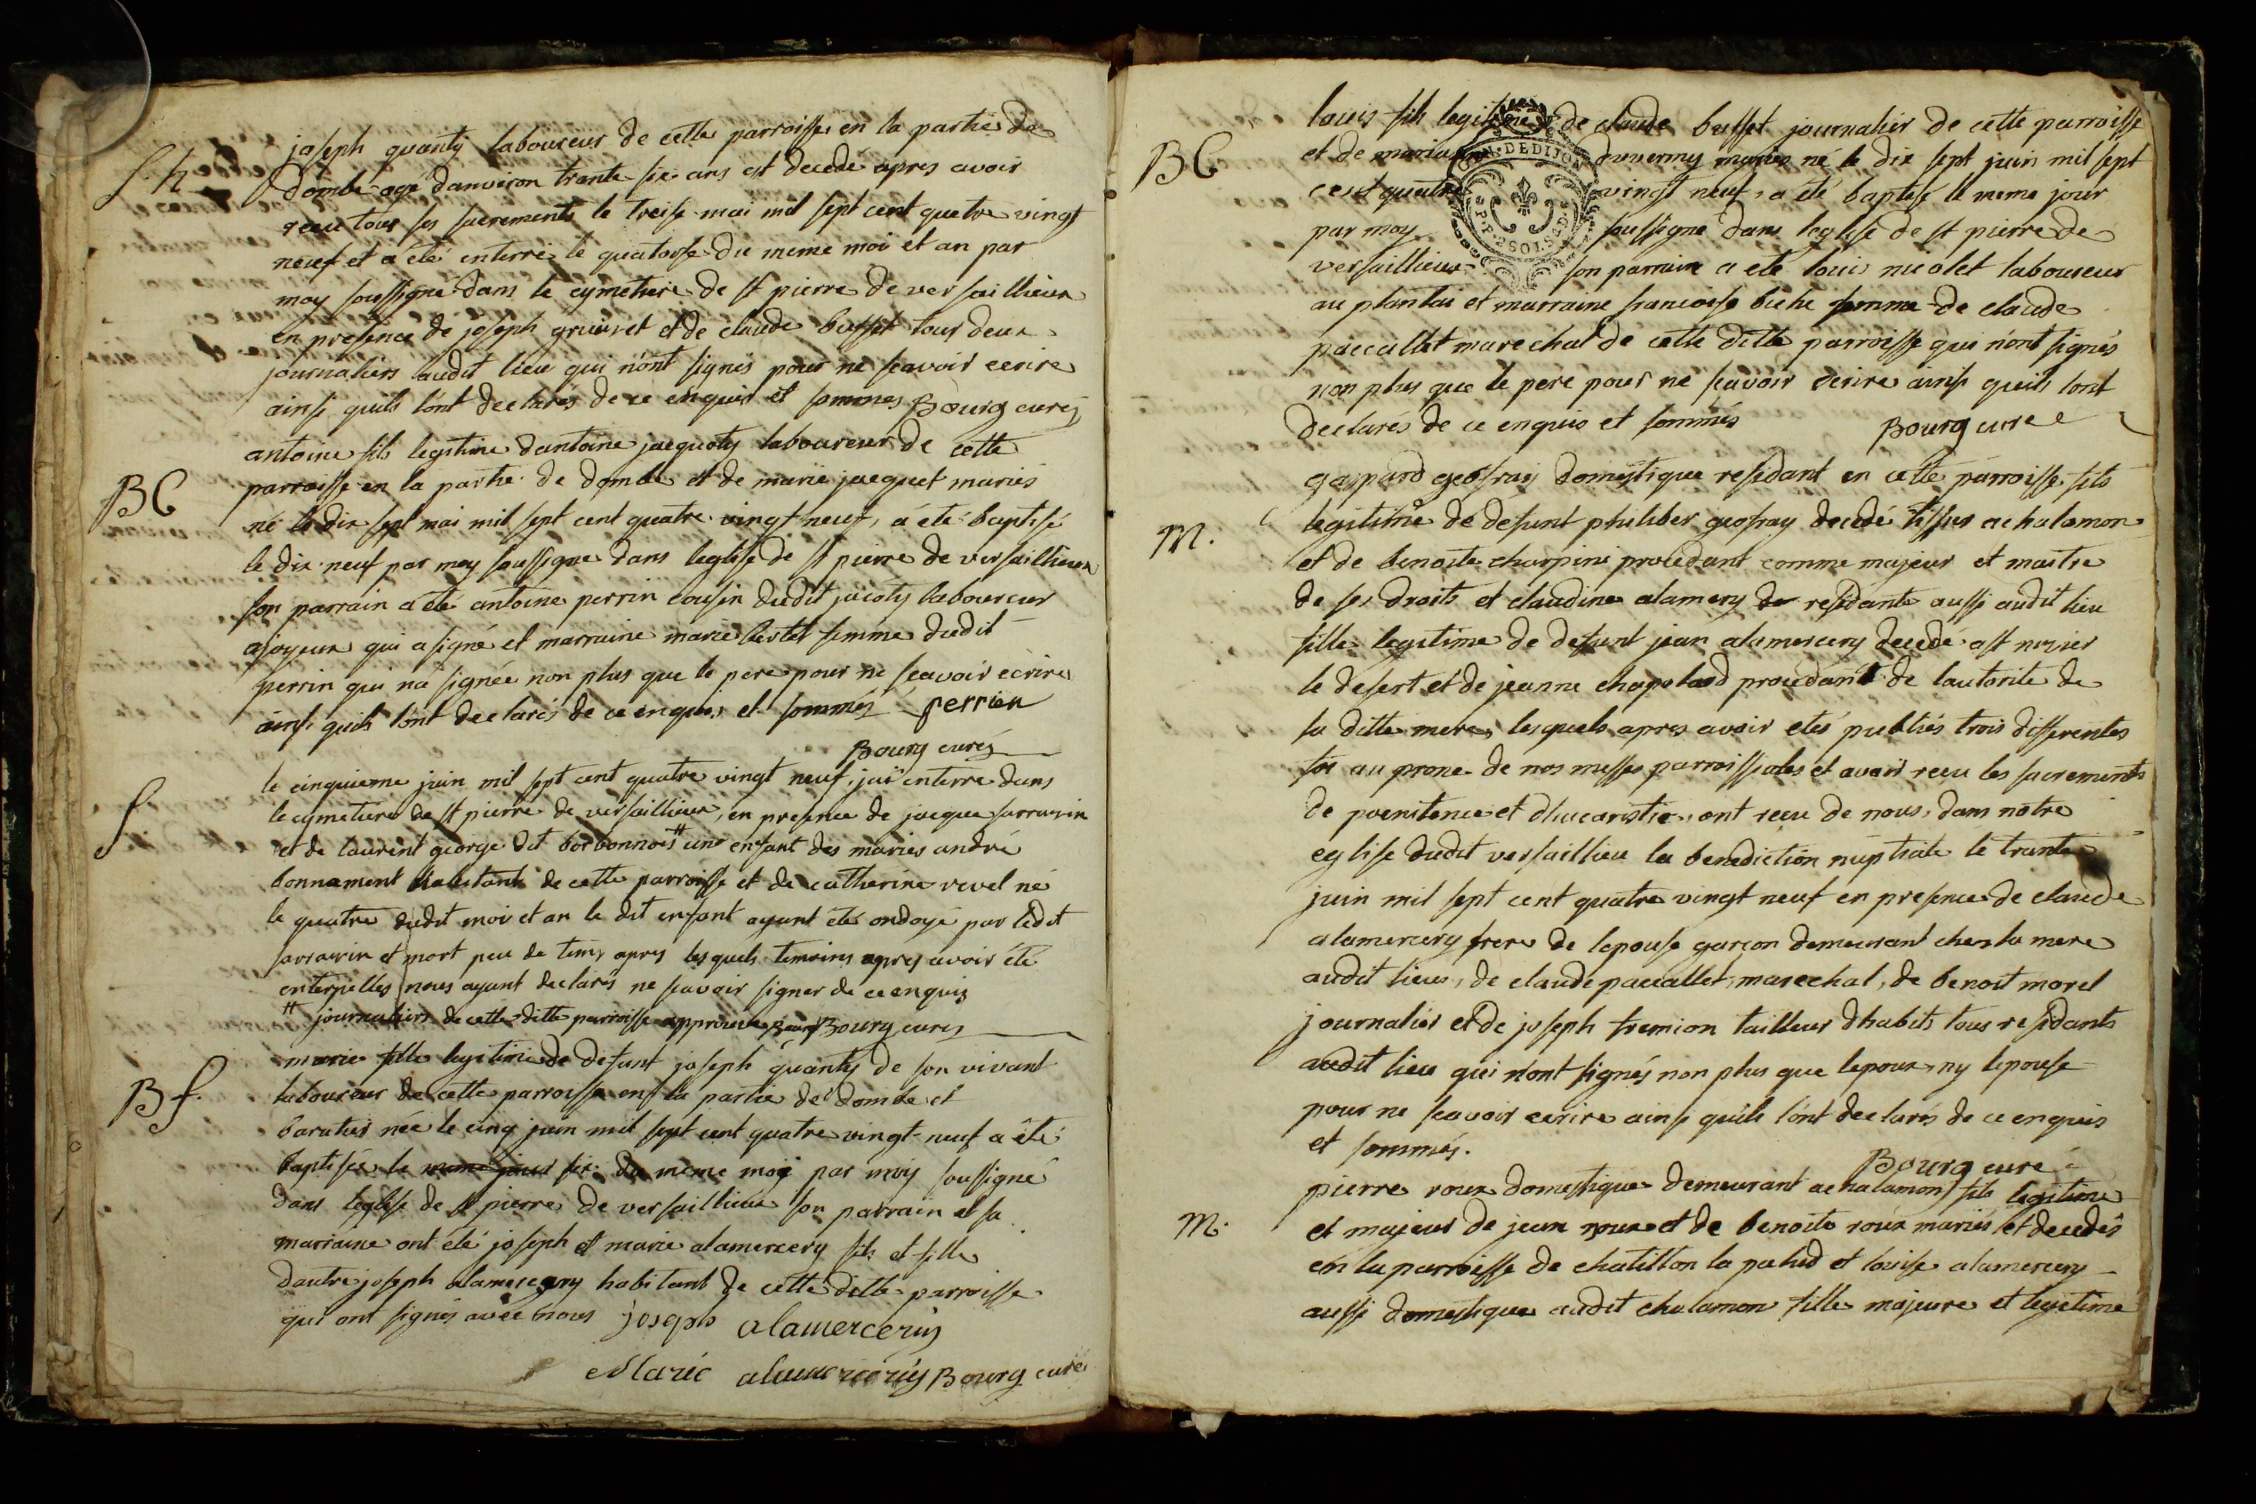 S. h
joseph quanty laboureur de cette parroisse en la partie de
dombe agé danviron trante six ans est decedé apres avoir
receu tous ses sacrements le treise mai mil sept cent quatre vingt
neuf et a été enterré le quatorse du meme moi et an par
moy soussigné dans le cymetiere de st pierre de versaillieux
en presence de joseph et de claude buffet tous deux
journaliers audit lieu qui n'ont signés pour ne scavoir ecrire
ainsi quils l'ont declarés de ce enquis et sommes Bourg curé
BC
antoine fils legitime dantoine jacquoty laboureur de cette
parroisse en la partie de dombe et de marie jacquet mariés
né le dix sept mai mil sept cent quatre vingt neuf, a été baptisé
le dix neuf par moy soussigné dans leglise de st pierre de versaillieux
son parrain a été antoine perrin cousin dudit jacoty laboureur
ajoyeux qui a signé et marraine marie bertet femme dudit
perrin qui n'a signée non plus que le pere pour ne scavoir ecrire
ainsi quils l'ont declarés de ce enquis et sommés perrien
Bourg curé
S.
le cinquieme juin mil sept cent quatre vingt neuf, jai enterré dans
le cymetiere de st pierre de versaillieux, en presence de jacque sarravin
et de laurent george dit borbonnois # un enfant des mariés andré
bonnament habitant de cette parroisse et de catherine revel né
le quatre dudit moi et an le dit enfant ayant été ondoyé par ledit
sarravin et mort peu de tems apres les quels temoins apres avoir été
enterpelles nous ayant declarés ne scavoir signer de ce enquis
# journaliers de cette ditte parroisse approuvé Bourg curé
B f.
marie fille legitime de defunt joseph quanty de son vivant
laboureur de cette parroisse en la partie de dombe et
baratier née le cinq juin mil sept cent quatre vingt neuf a été
baptisée le meme jour six du meme moy par moy soussigné
dans leglise de st pierre de versaillieux son parrain et sa
marraine ont été joseph et marie alamercery fils et fille
dautre joseph alamercery habitant de cette ditte parroisse
qui ont signés avec nous joseph alamercery
Marie alamercery Bourg curé
BC
louis fils legitime de claude buffet journalier de cette parroisse
et de duvernay mariés né le dix sept juin mil sept
cent quatre vingt neuf, a été baptisé le meme jour
par moy soussigné dans leglise de st pierre de
versaillieux son parrain a été loui nicolet laboureur
au plantai et marraine francoise biche femme de claude
paccallet marechal de cette ditte parroisse qui n'ont signés
non plus que le pere pour ne scavoir ecrire ainsi quils lont
declarés de ce enquis et sommés Bourg curé
DE DIJON
M.
gaspard geofray domestique residant en cette parroisse fils
legitime de defunt philiber geofray decedé tissier a chalamon
et de benoite charpine procedant comme majeur et maitre
de ses droits et claudine alamery de residante aussi audit lieu
fille legitime de defunt jean alamercery decedé a st nizier
le desert et de jeanne chapoland procedant de lautorité de
sa ditte mere, lesquels apres avoir etés publiés trois differentes
foi au prone de nos messes parroissiales et avoir receu les sacrements
de poenitence et d'eucaristie, ont receu de nous, dans notre
eglise dudit versaillieu la benediction nuptiale le trante
juin mil sept cent quatre vingt neuf en presence de claude
alamercery frere de lepouse garçon demeurant chez la mere
audit lieux, de claude paccallet, marechal, de benoit morel
journalier et de joseph fremion tailleur dhabits tous residants
audit lieu qui n'ont signés non plus que lepoux, ny lepouse
pour ne scavoir ecrire ainsi quils l'ont declarés de ce enquis
et sommés.
Bourg curé
M.
pierre roux domestique demeurant a chalamon, fils legitime
et majeur de jean roux et de benoite roux mariés et decedés
en la parroisse de chatillon la palud et louise alamercery
aussi domestique audit chalamon fille majeure et legitime